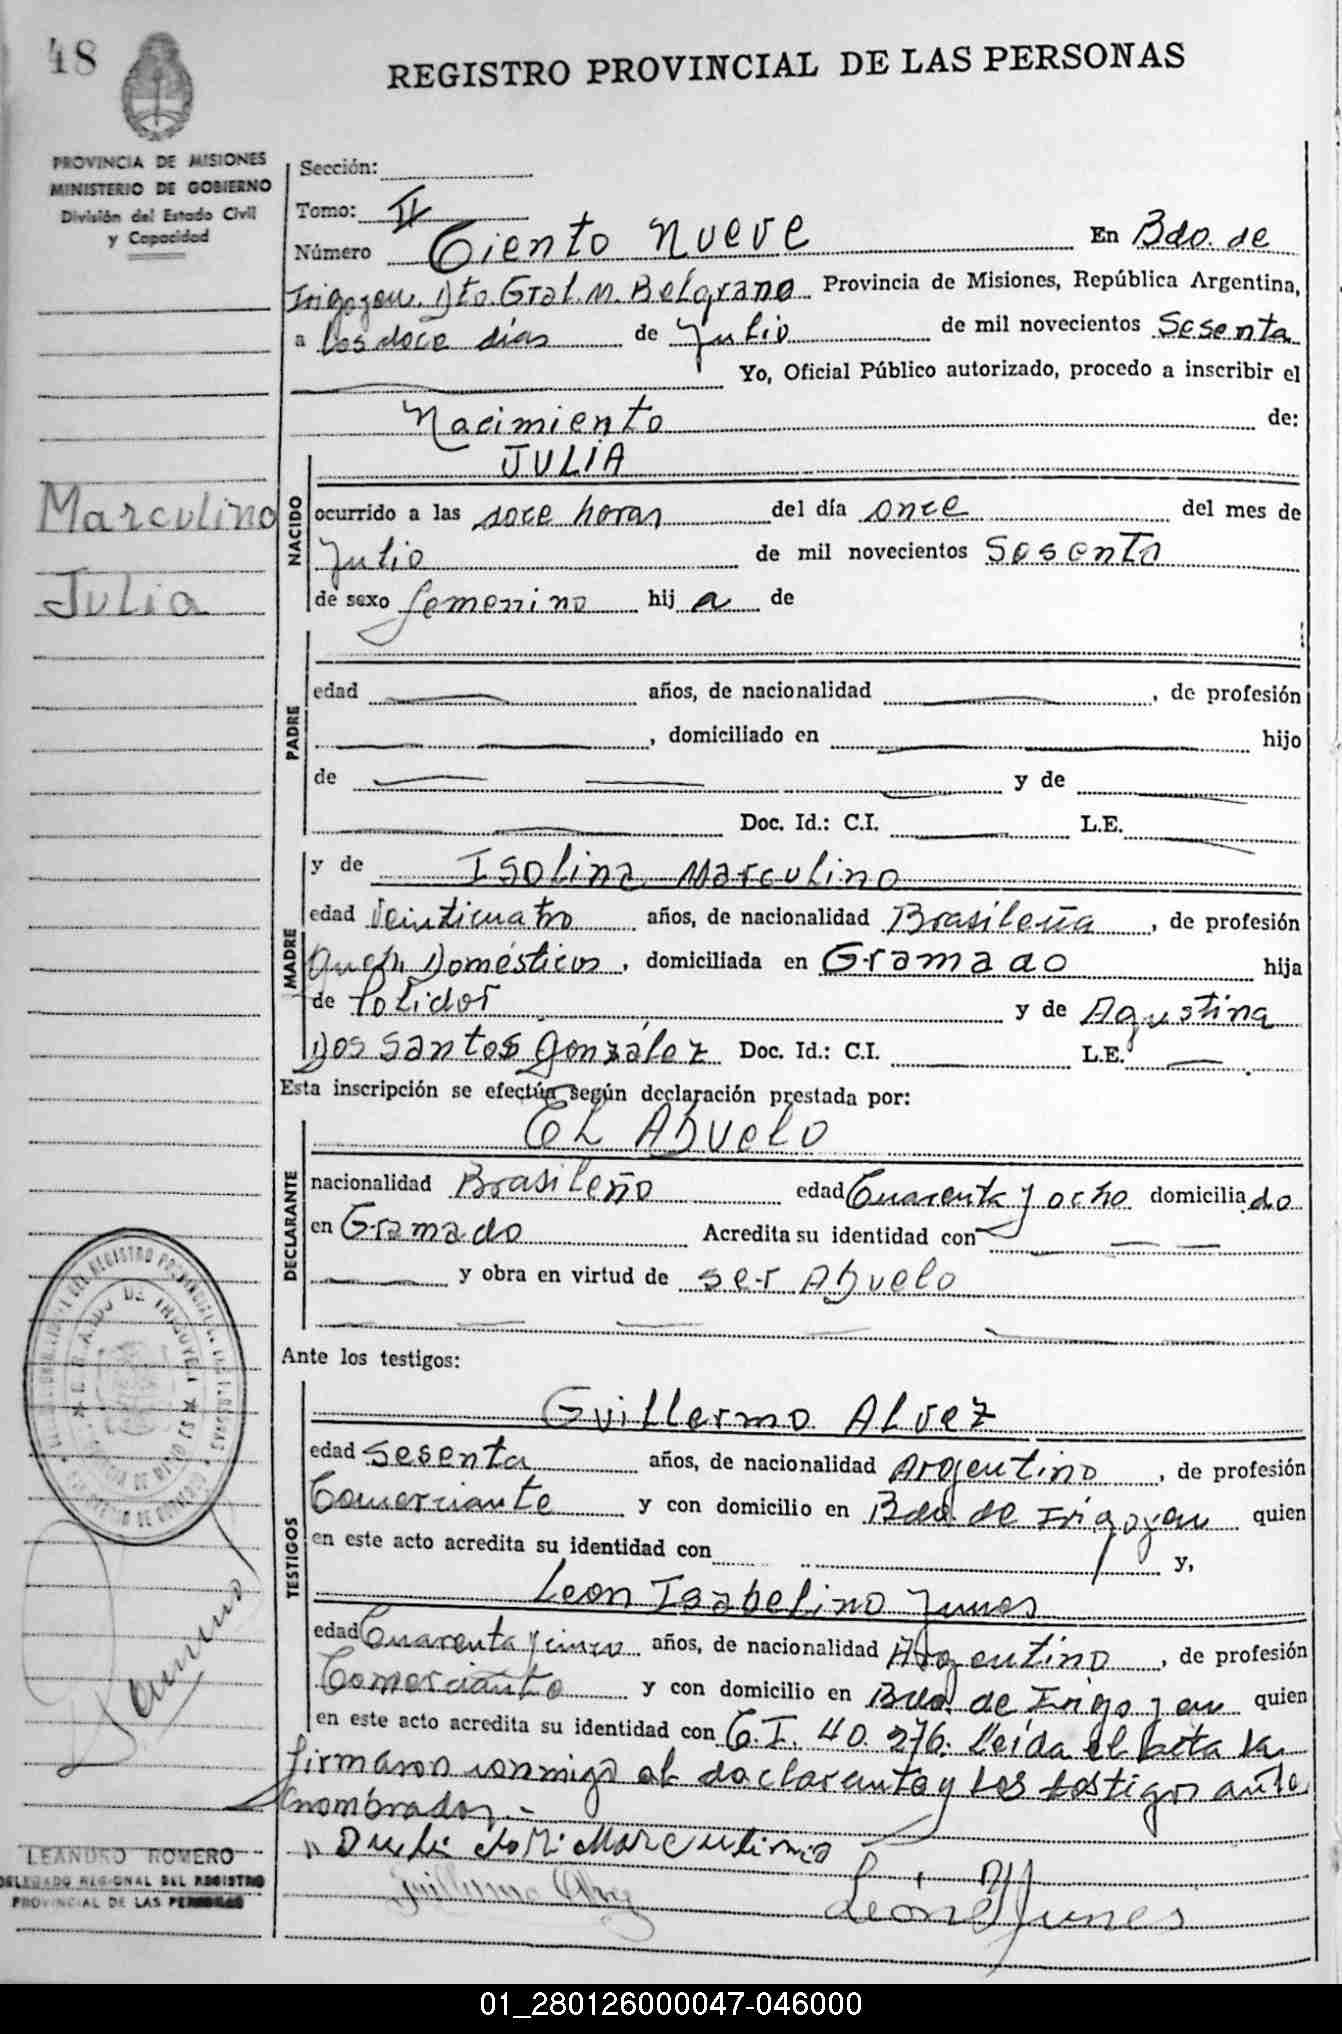 48
REGISTRO PROVINCIAL DE LAS PERSONAS
PROVINCIA DE MISIONES
MINISTERIO DE GOBIERNO
División del Estado Civil
y Capacidad
Sección:
Tomo: II
Número Ciento nueve En Bdo. de
Irigoyen, Dto. Gral. M. Belgrano Provincia de Misiones, República Argentina,
a los doce días de Julio de mil novecientos Sesenta
Yo, Oficial Público autorizado, procedo a inscribir el
Nacimiento de:
JULIA
Marculino
Julia
NACIDO
ocurrido a las doce horas del día once del mes de
Julio de mil novecientos Sesenta
de sexo femenino hij a de
PADRE
edad años, de nacionalidad , de profesión
, domiciliado en hijo
de y de
Doc. Id.: C.I. L.E.
MADRE
y de Isolina Marculino
edad Veinticuatro años, de nacionalidad Brasileña , de profesión
Domésticos , domiciliada en Gramado hija
de Polidor y de Agustina
Dos Santos González Doc. Id.: C.I. L.E.
Esta inscripción se efectúa según declaración prestada por:
EL Abuelo
DECLARANTE
nacionalidad Brasileño edad Cuarenta y ocho domicilia do
en Gramado Acredita su identidad con
y obra en virtud de ser Abuelo
Ante los testigos:
TESTIGOS
Guillermo ALvez
edad Sesenta años, de nacionalidad Argentino , de profesión
Comerciante y con domicilio en Bdo. de Irigoyen quien
en este acto acredita su identidad con y,
Leon Isabelino Junes
edad Cuarenta y cinco años, de nacionalidad Argentino , de profesión
Comerciante y con domicilio en Bdo. de Irigoyen quien
en este acto acredita su identidad con C.I. 40.276. Leída el acta la
firmaron conmigo el declarante y los testigos ante
nombrados.-
Marculino
Guillermo Alvez
León Junes
LEANDRO ROMERO
DELEGADO REGIONAL DEL REGISTRO
PROVINCIAL DE LAS PERSONAS
01_280126000047-046000